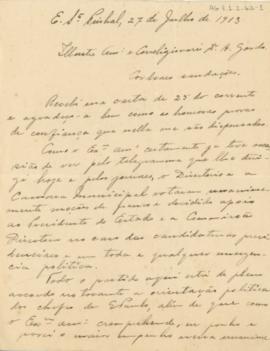 AG 1.1.2.62-1
E. Sto Pinhal, 27 de Julho de 1913
Illustre Amo e Correligionario Dr. A. Gordo.
Cordeaes saudações.
Recebi sua carta de 25 do corrente
e agradeço-a bem como as honrosas provas
de confiança que nella me são dispensadas
Como o Exmo amo certamente já teve occa-
sião de ver pelo telegramma que lhe diri-
gi hoje e pelos jornaes, o Directorio e a
Camara Municipal votaram unanime-
mente moções de firme e decidido apoio
ao Presidente do Estado e a Commissão
Directora no caso das candidaturas presi-
denciaes e em toda e qualquer emergen-
cia politica.
Todo o partido aqui está de pleno
accordo no tocante a orientação politica
dos chefes de S. Paulo, alem de que como
o Exmo amo comprehende, eu punha e
porei o maior empenho nessa unanime